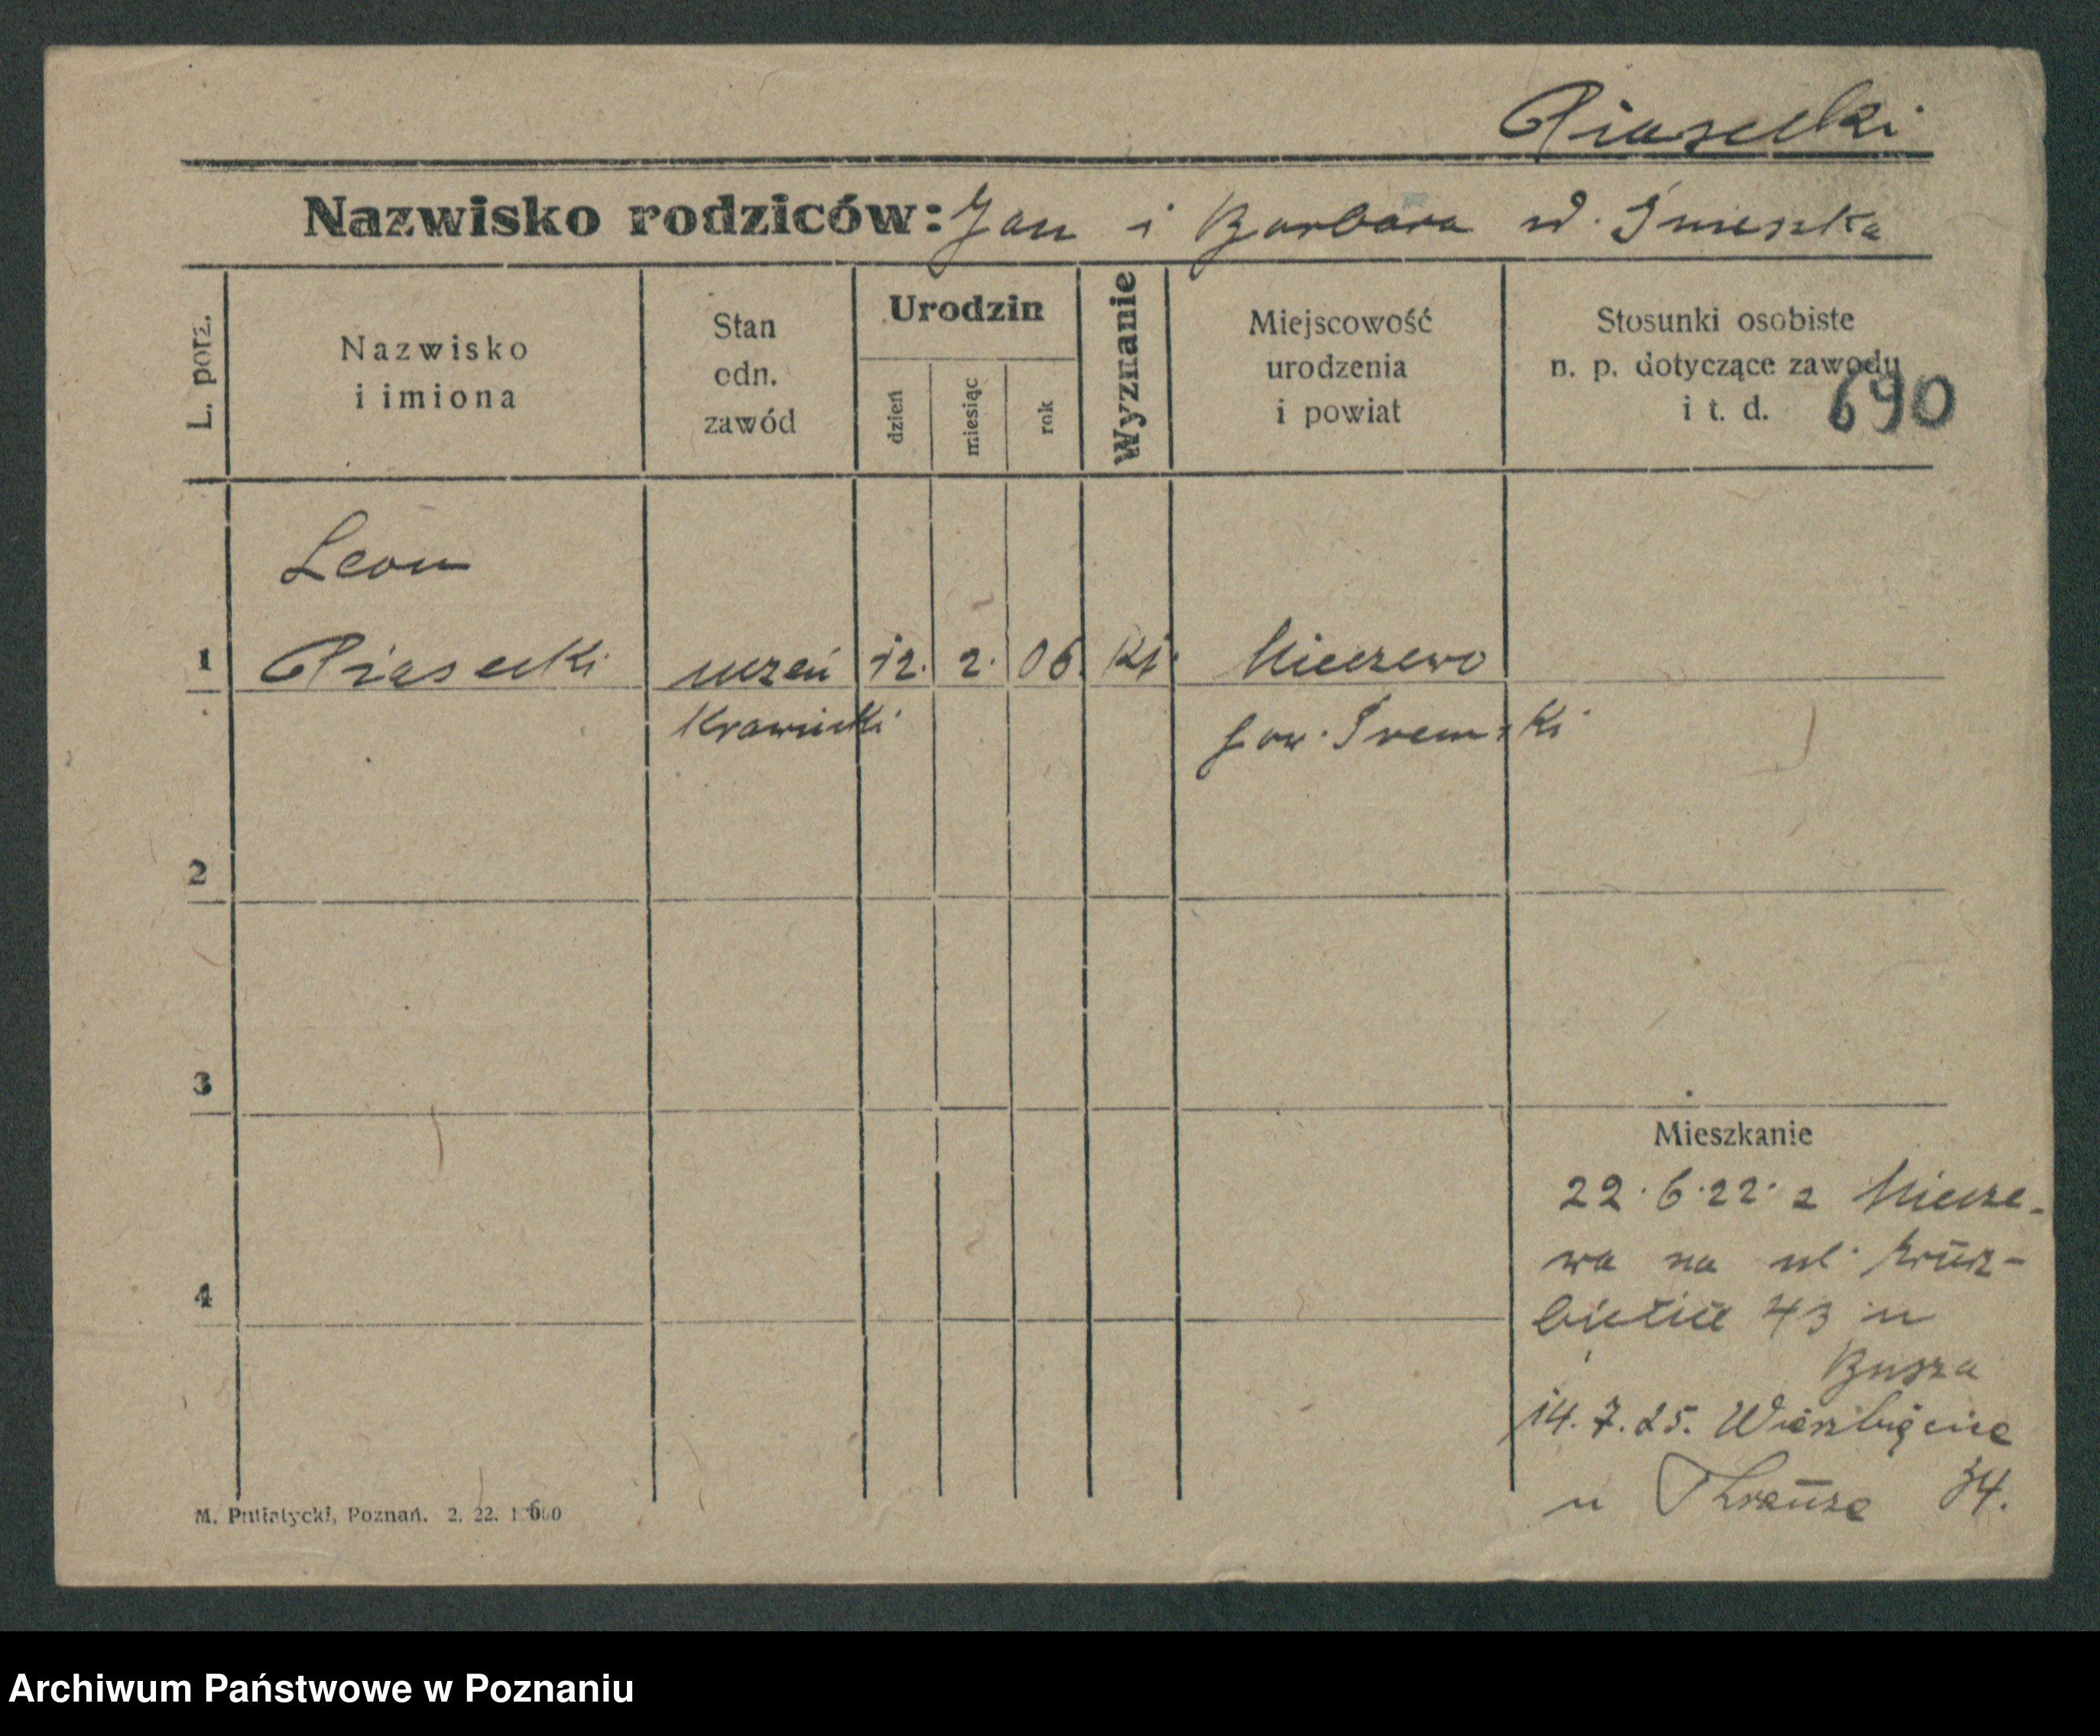 Piasecki
Nazwisko rodziców: Jan i Barbara
L. porz.
Nazwisko
i imiona
Stan
odn.
zawód
Urodzin
dzień
miesiąc
rok
Wyznanie
Miejscowość
urodzenia
i powiat
Stosunki osobiste
n. p. dotyczące zawodu
i t. d.
690
Leon
1 Piasecki uczeń 12. 2. 06. kt. Mieczewo
Krawiecki pow. Śremski
2
3
4
Mieszkanie
22.6.22. z Miecze-
wa na ul. Wierz-
bięcice 43 u
Busza
14.7.25. Wierzbięcice
u Krauze 34.
M. Putiatycki, Poznań. 2. 22.
Archiwum Państwowe w Poznaniu